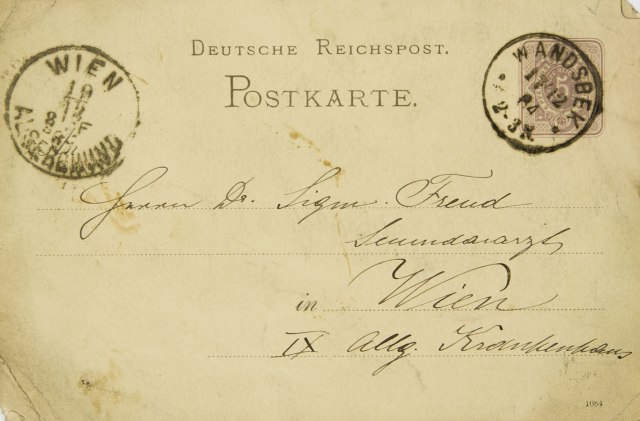 DEUTSCHE REICHSPOST.
POSTKARTE.
WIEN
19
12
8
ALSERGRUND
WANDSBEK
17 12
84
2-3N.
5
Herrn Dr. Sigm. Freud
Secundararzt
in Wien
IX Allg. Krankenhaus
1084